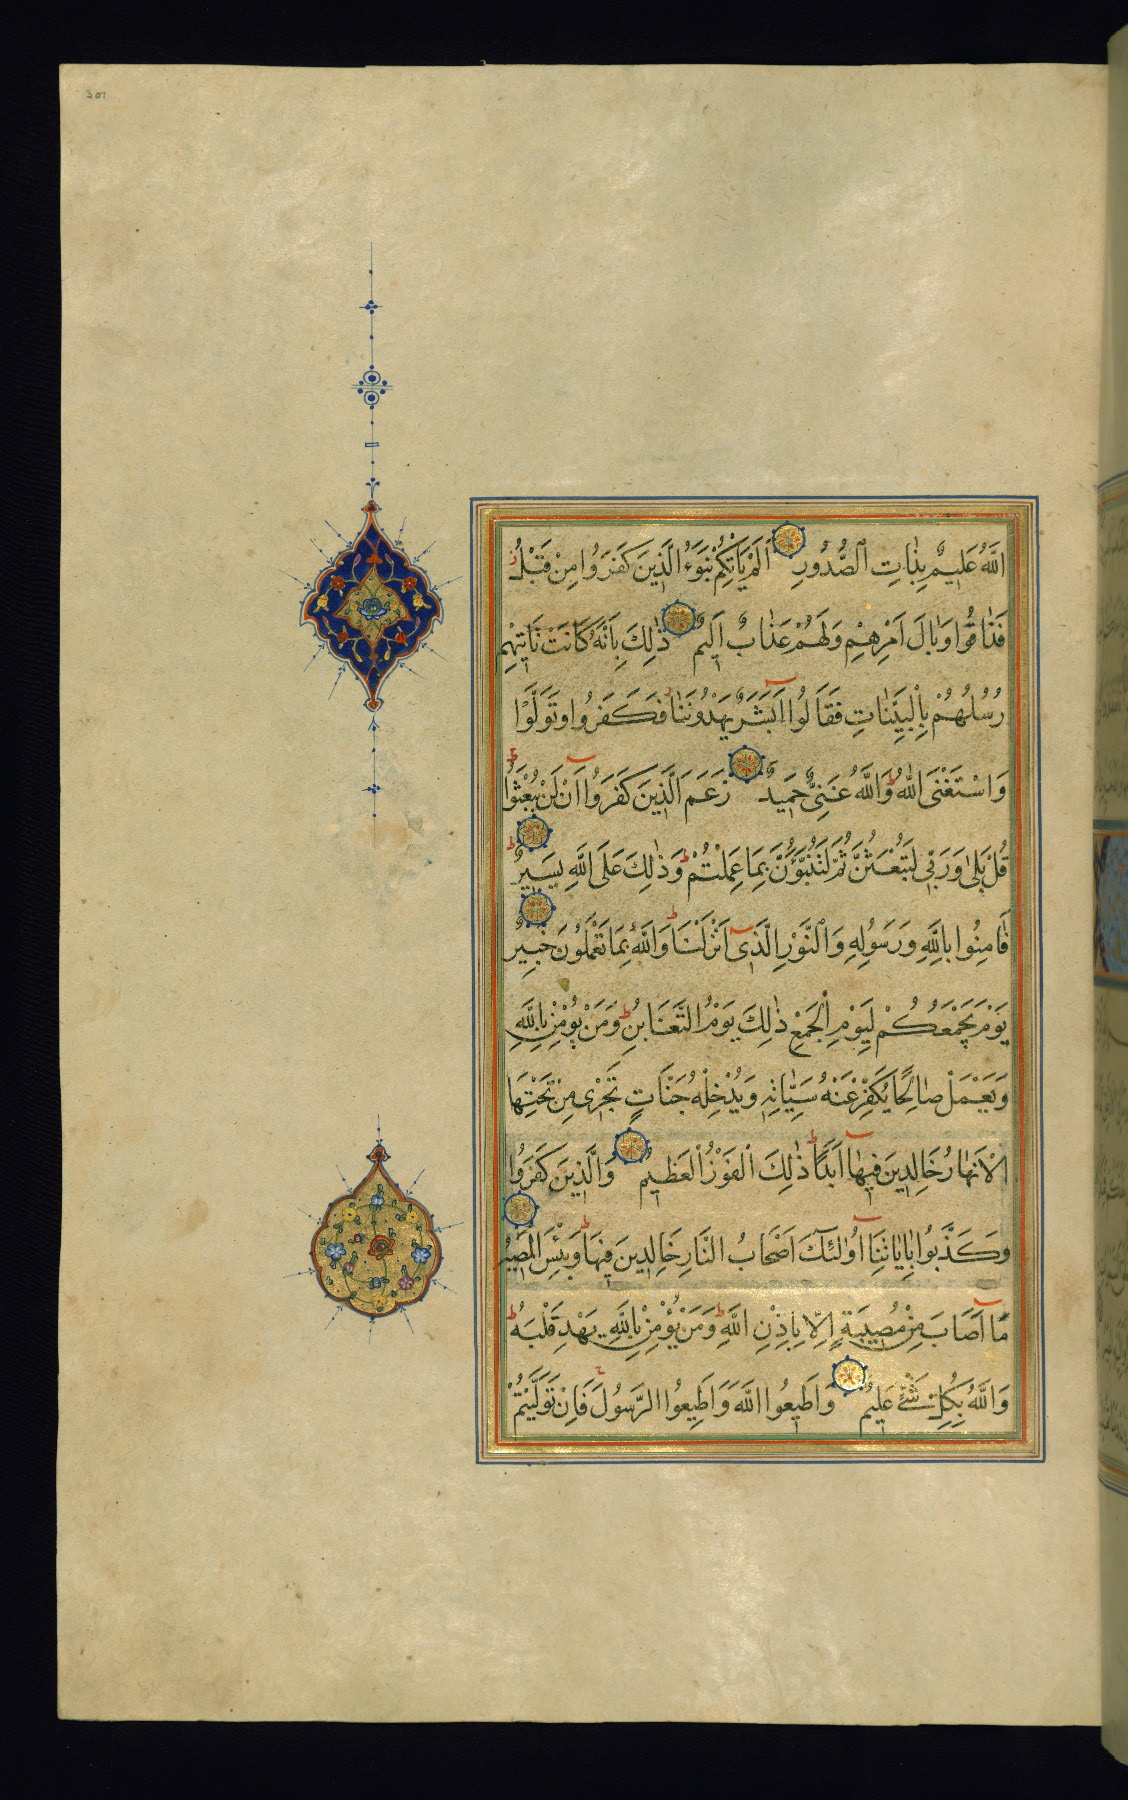 301
اللَّهُ عَلِيمٌ بِذَاتِ الصُّدُورِ اَلَمْ يَأْتِكُمْ نَبَؤُا الَّذِينَ كَفَرُوا مِنْ قَبْلُ
فَذَاقُوا وَبَالَ اَمْرِهِمْ وَلَهُمْ عَذَابٌ اَلِيمٌ ذٰلِكَ بِاَنَّهُ كَانَتْ تَاْتِيهِمْ
رُسُلُهُمْ بِالْبَيِّنَاتِ فَقَالُوا اَبَشَرٌ يَهْدُونَنَا فَكَفَرُوا وَتَوَلَّوْا
وَاسْتَغْنَى اللّٰهُ وَاللَّهُ غَنِيٌّ حَمِيدٌ زَعَمَ الَّذِينَ كَفَرُوا اَنْ لَنْ يُبْعَثُوا
قُلْ بَلٰى وَرَبِّي لَتُبْعَثُنَّ ثُمَّ لَتُنَبَّؤُنَّ بِمَا عَمِلْتُمْ وَذٰلِكَ عَلَى اللَّهِ يَسِيرٌ
فَاٰمِنُوا بِاللَّهِ وَرَسُولِهِ وَالنُّورِ الَّذِى اَنْزَلْنَا وَاللَّهُ بِمَا تَعْمَلُونَ خَبِيرٌ
يَوْمَ يَجْمَعُكُمْ لِيَوْمِ الْجَمْعِ ذٰلِكَ يَوْمُ التَّغَابُنِ وَمَنْ يُؤْمِنْ بِاللَّهِ
وَيَعْمَلْ صَالِحًا يُكَفِّرْ عَنْهُ سَيِّئَاتِهِ وَيُدْخِلْهُ جَنَّاتٍ تَجْرِى مِنْ تَحْتِهَا
الْاَنْهَارُ خَالِدِينَ فِيهَا اَبَدًا ذٰلِكَ الْفَوْزُ الْعَظِيمُ وَالَّذِينَ كَفَرُوا
وَكَذَّبُوا بِاٰيَاتِنَا اُولٰئِكَ اَصْحَابُ النَّارِ خَالِدِينَ فِيهَا وَبِئْسَ الْمَصِيرُ
مَا اَصَابَ مِنْ مُصِيبَةٍ اِلَّا بِاِذْنِ اللَّهِ وَمَنْ يُؤْمِنْ بِاللَّهِ يَهْدِ قَلْبَهُ
وَاللَّهُ بِكُلِّ شَيْءٍ عَلِيمٌ وَاَطِيعُوا اللَّهَ وَاَطِيعُوا الرَّسُولَ فَاِنْ تَوَلَّيْتُمْ